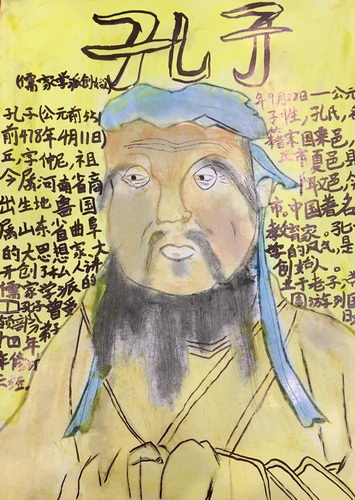 孔子
(儒家学派创始
孔子(公元前551
前478年4月11日)
丘,字仲尼,祖
今属河南省商
出生地鲁国
属山东省曲阜
大思想家大
开创私人讲
儒家学派的
曾受
领部分
十四年
年修订
六经
年9月28日一公元
子姓,孔氏,名
籍宋国栗邑
丘市夏邑县
陬邑,今
市。中国著名
教家。孔
的风气,是
创始人。
于老子,
周游列国